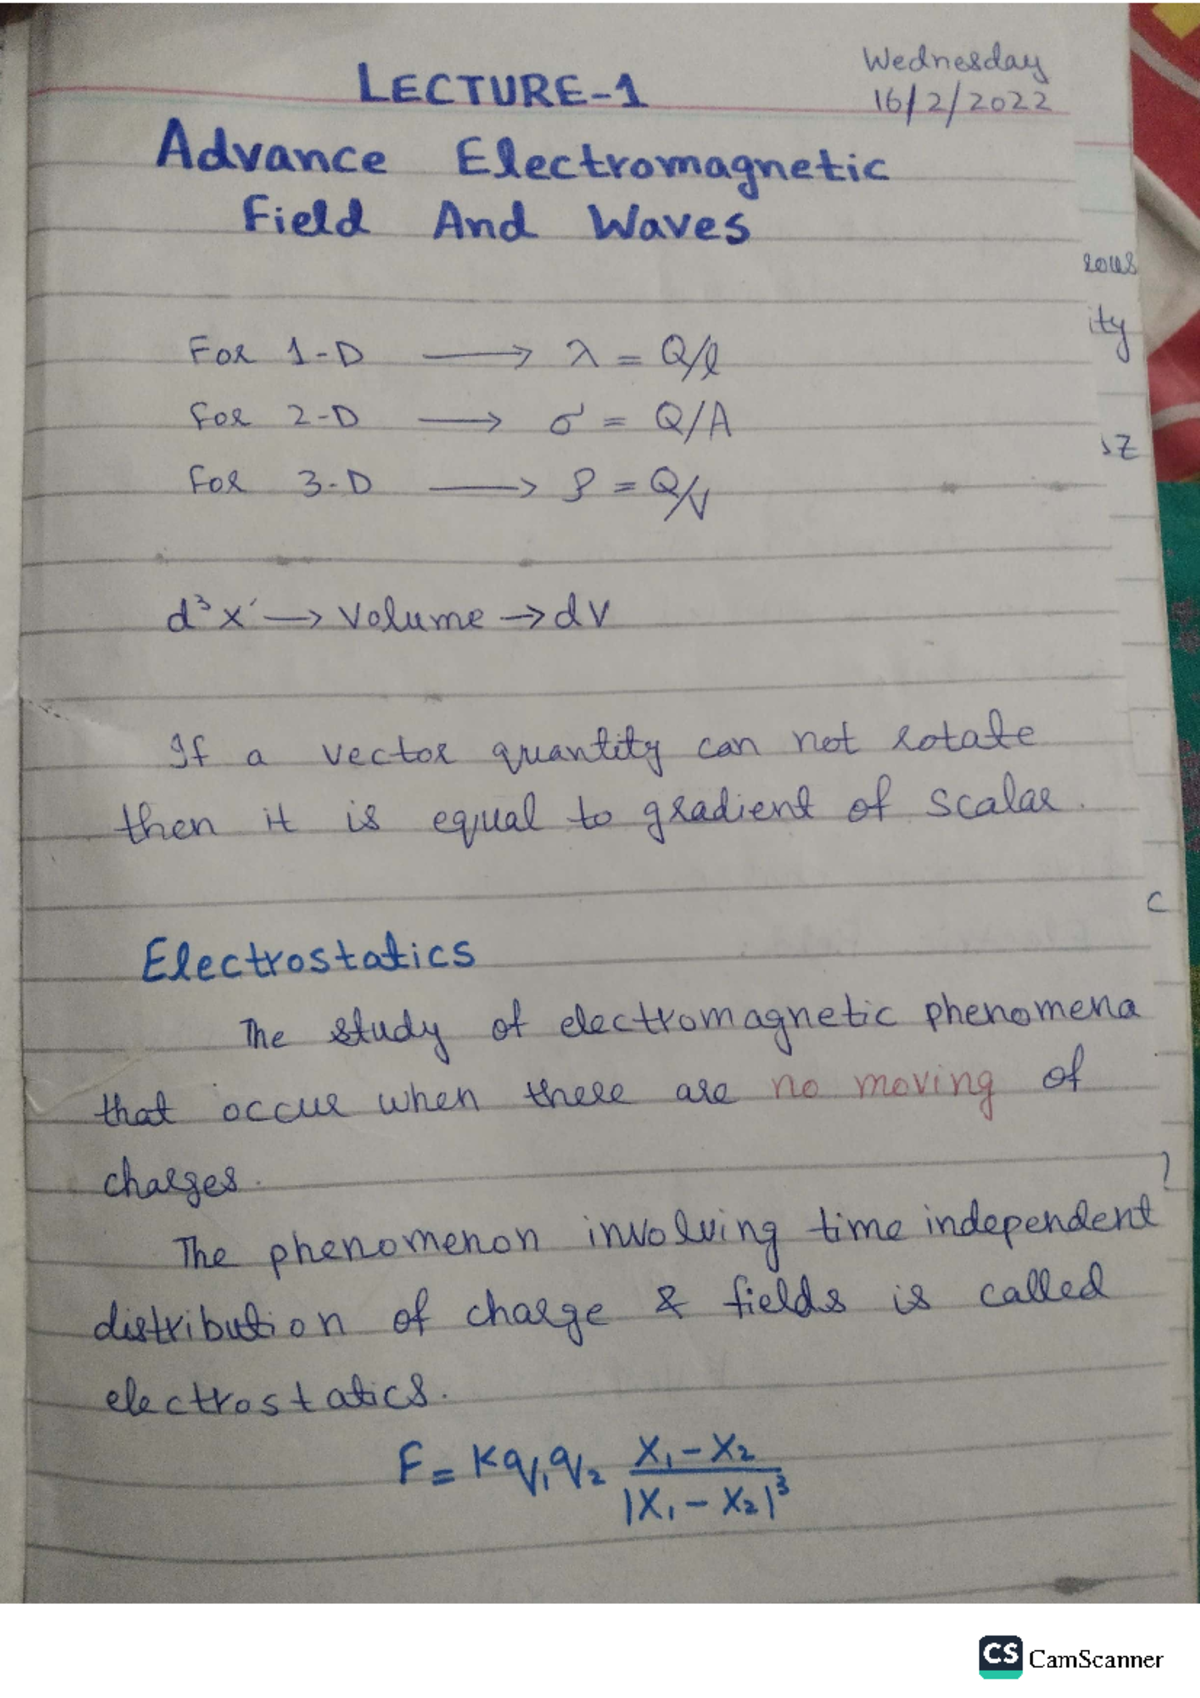 LECTURE-1
Wednesday
16/2/2022
Advance Electromagnetic
Field And Waves
For 1-D ⟶ λ = Q/l
For 2-D ⟶ σ = Q/A
For 3-D ⟶ ρ = Q/V
d³x′ → Volume → dV
If a vector quantity can not rotate
then it is equal to gradient of scalar.
Electrostatics
The study of electromagnetic phenomena
that occur when there are no moving of
charges.
The phenomenon involving time independent
distribution of charge & fields is called
electrostatics.
F = Kq₁q₂ (X₁ - X₂)/|X₁ - X₂|³
ity
c
CS CamScanner